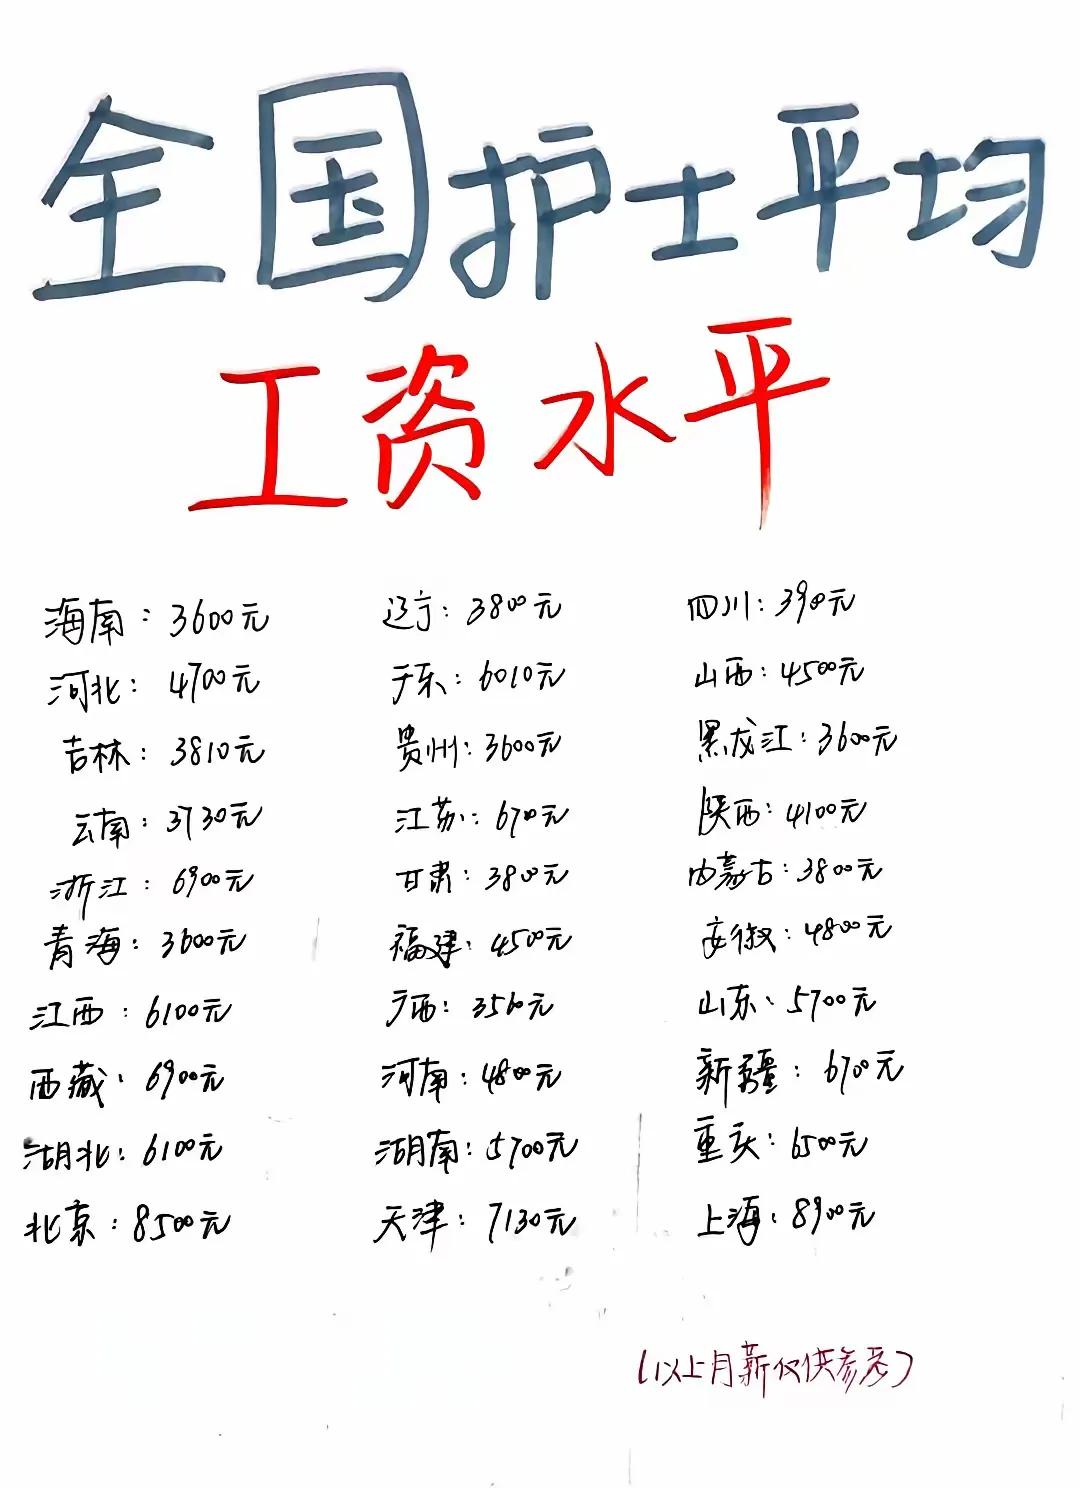 全国护士平均
工资水平
海南：3600元 辽宁：3800元 四川：3900元
河北：4700元 广东：6010元 山西：4500元
吉林：3810元 贵州：3600元 黑龙江：3600元
云南：3730元 江苏：6700元 陕西：4100元
浙江：6900元 甘肃：3800元 内蒙古：3800元
青海：3600元 福建：4500元 安徽：4800元
江西：6100元 广西：3560元 山东：5700元
西藏：6900元 河南：4800元 新疆：6700元
湖北：6100元 湖南：5700元 重庆：6500元
北京：8500元 天津：7130元 上海：8900元
（以上月薪仅供参考）